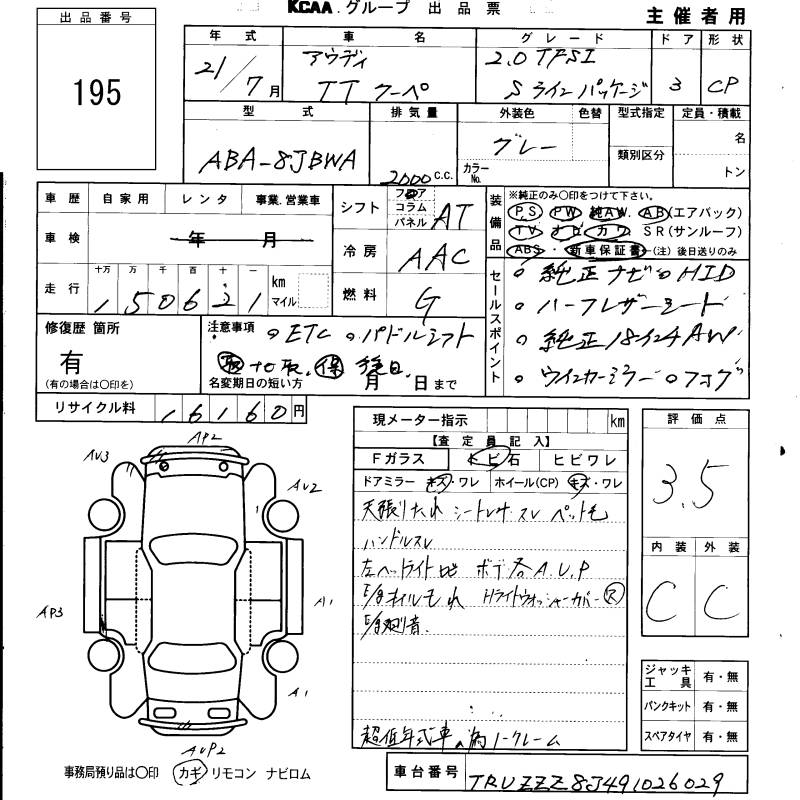 KCAA.グループ 出品票
主催者用
出品番号
195
年式 車名 グレード ドア 形状
21/7月 アウディ TTクーペ 2.0 TFSI Sラインパッケージ 3 CP
型式 排気量 外装色 色替 型式指定 定員・積載
ABA-8JBWA 2000c.c. グレー カラーNo. 類別区分 名 トン
車歴 自家用 レンタ 事業.営業車
車検 年 月
走行 十万 万 千 百 十 一 km マイル
シフト フロア コラム パネル AT
冷房 AAC
燃料 G
装備品 ※純正のみ〇印をつけて下さい。
PS PW 純AW AB(エアバック)
TV ナビ カワ SR(サンルーフ)
ABS・新車保証書(注)後日送りのみ
セールスポイント
純正ナビ HID
ハーフレザーシート
純正18インチAW
ウインカーミラー フォグ
修復歴 箇所
有
(有の場合は〇印を)
注意事項 ETC パドルシフト
名変期日の短い方 月 日まで
リサイクル料 16160円
現メーター指示 km
【査定員記入】
Fガラス トビ石 ヒビワレ
ドアミラー キズ・ワレ ホイール(CP) キズ・ワレ
天張りたれ シートレザースレ ペット毛
ハンドルスレ
左ヘッドライト ボデ各A.U.P
Hライトウォッシャーカバー
超低年式車の為ノークレーム
評価点
3.5
内装 外装
C C
ジャッキ工具 有・無
パンクキット 有・無
スペアタイヤ 有・無
AP2
AU3
AU2
AP3
A1
A1
AUP2
事務局預り品は〇印 カギ リモコン ナビロム
車台番号 TRUZZZ8J491026029